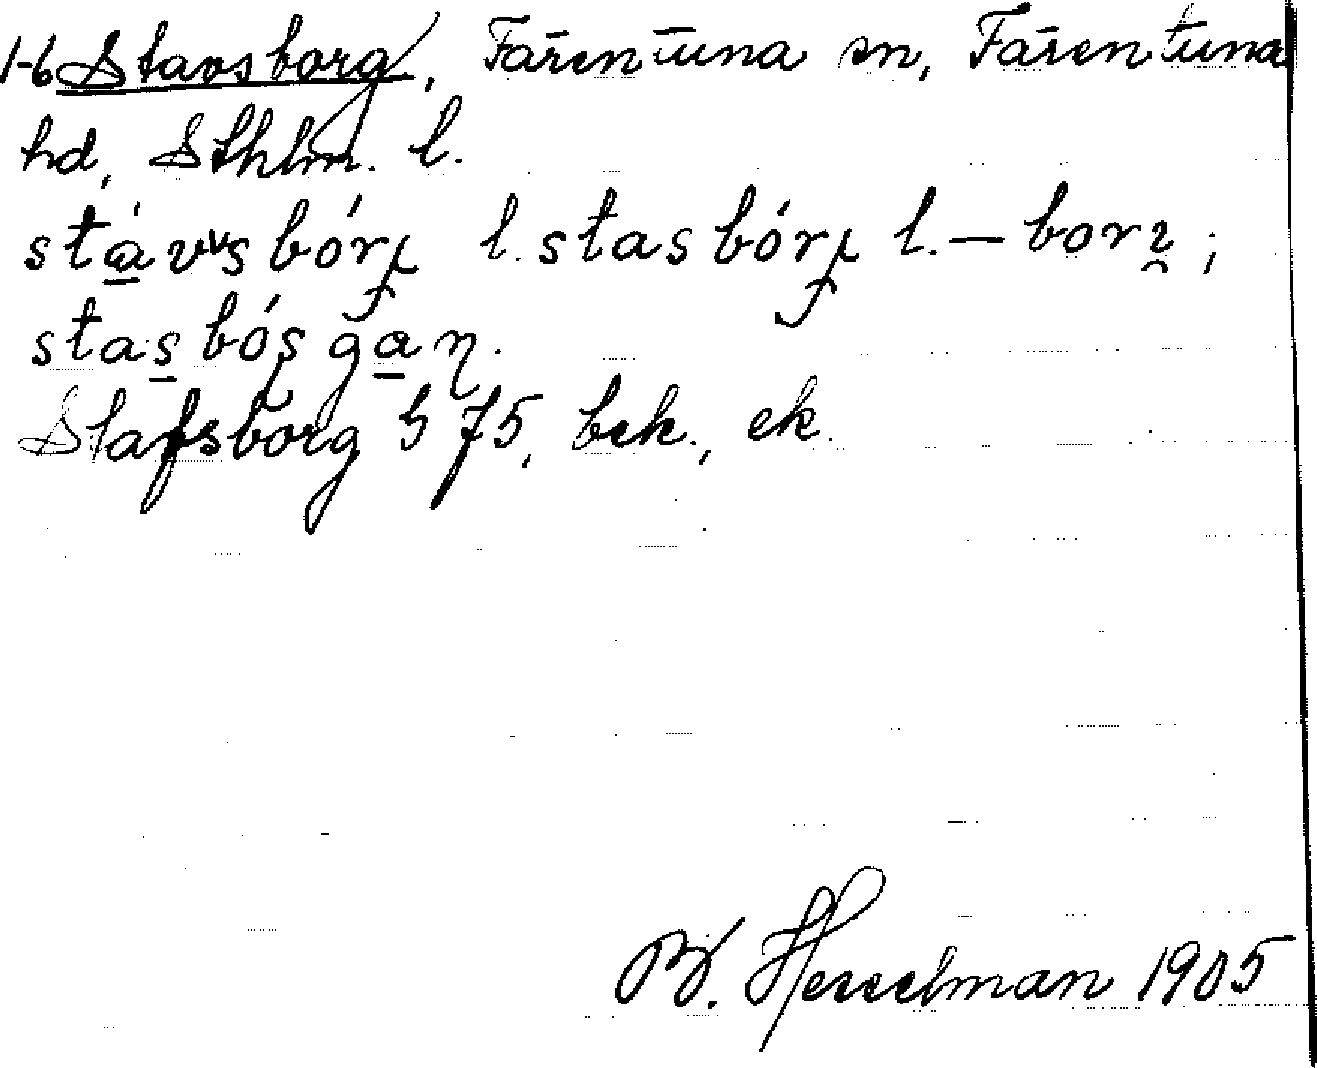 1-6 Stavsborg, Färentuna sn, Färentuna
hd, Sthlm. l.
stávsbórj l. stasbórj l. — bori;
stasbósgan.
Stafsborg h 75, bek., ek.
B. Hesselman 1905